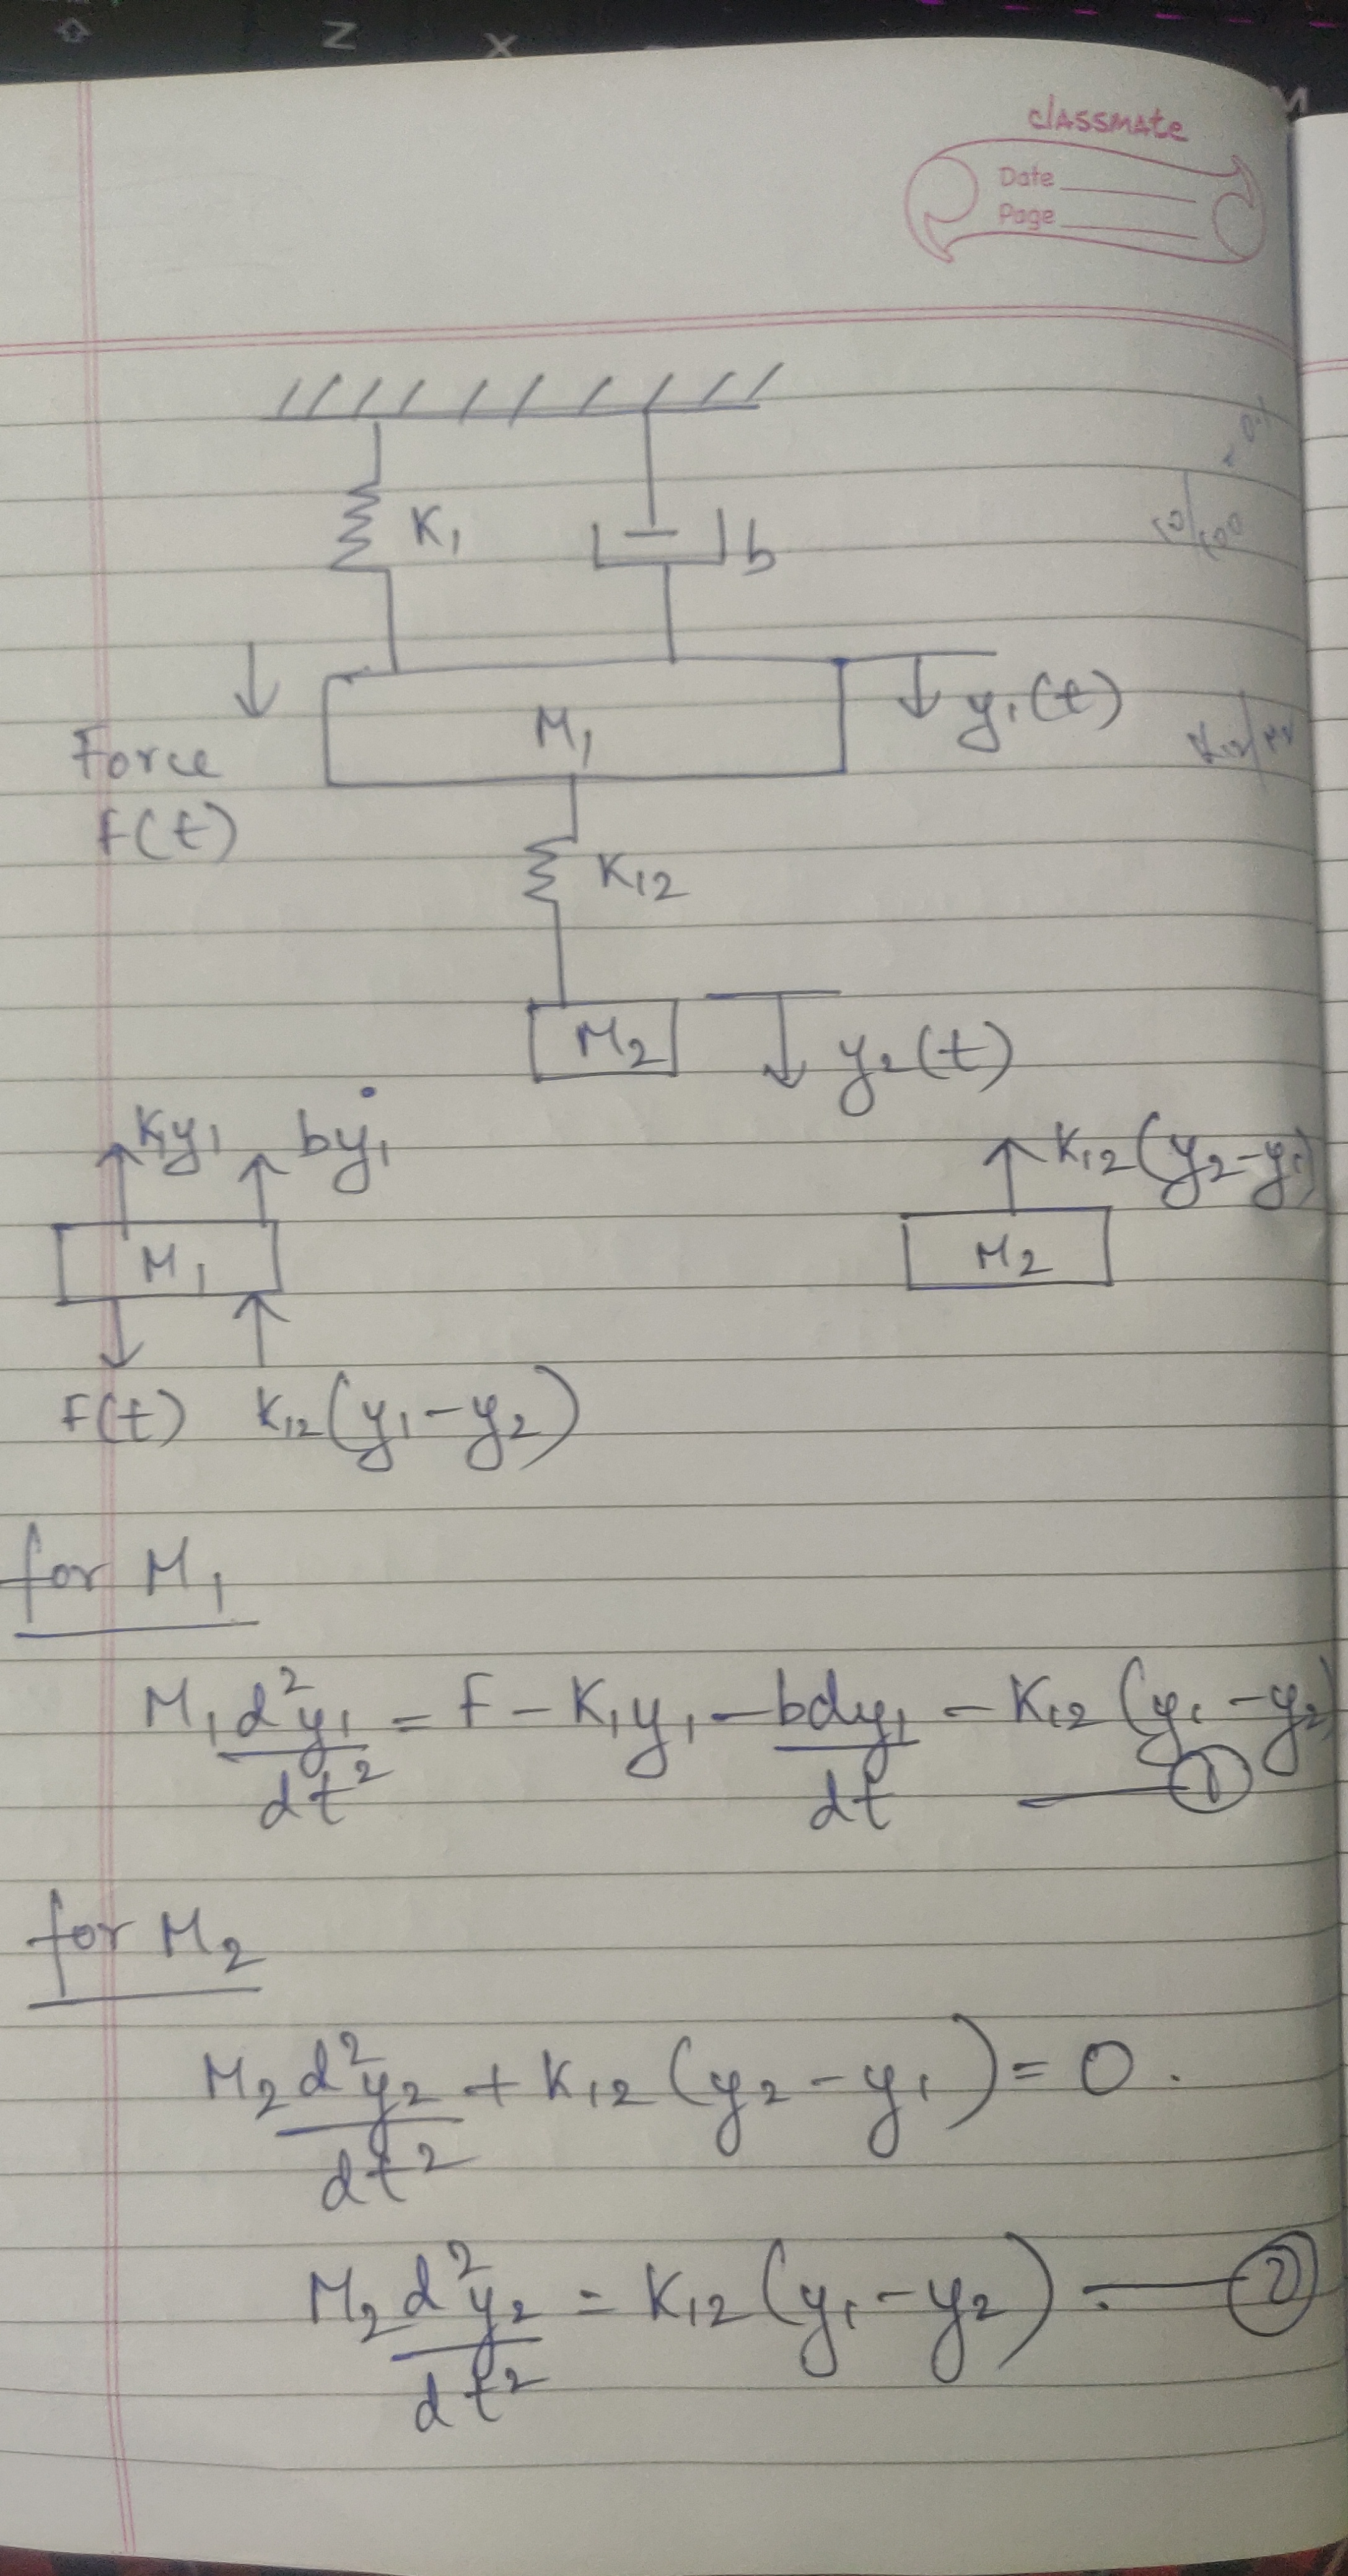 Z
X
M
classmate
Date
Page
K₁
b
M₁
y₁(t)
Force
F(t)
K₁₂
M₂
y₂(t)
K₁y₁ bẏ₁
K₁₂(y₂-y₁)
M₁
M₂
F(t) K₁₂(y₁-y₂)
for M₁
M₁ d²y₁/dt² = F - K₁y₁ - b dy₁/dt - K₁₂(y₁-y₂)
①
for M₂
M₂ d²y₂/dt² + K₁₂(y₂-y₁) = 0.
M₂ d²y₂/dt² = K₁₂(y₁-y₂). — ②